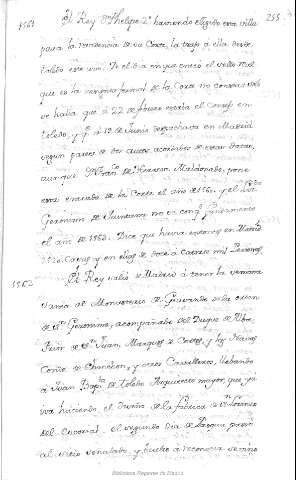 255
1561 El Rey Dn Phelipe 2º haviendo elegido esta villa
para la residencia de su Corte, la trajo á ella desde
Toledo este año. El dia en que entró el sello real
que es la verdadera señal de la Corte no consta: solo
se halla que á 22 de febrero estaba el Consejo en
Toledo, y qe á 19 de Junio despachaba en Madrid
segun parece de dos autos acordados de estas datas,
aunque Franco de Herrera Maldonado, pone
esta entrada de la Corte el año de 1560. y el Lizdo
Geronimo de Quintana
el año de 1563. Dice que havia entonces en Madrid
2520. Casas y en ellas de doce á catorce mil Personas
1562 El Rey salió de Madrid á tener la semana
santa al Monasterio de Guisando de la orden
de Sn Geronimo, acompañado del Duque de Alba,
Prior de Sn Juan, Marques de Cortes, y las Navas
Conde de Chinchon, y otros Cavalleros, llebando
á Juan Bapta de Toledo Arquitecto mayor, que ya
iva haciendo el Diseño de la fabrica de Sn Lorenzo
del Escorial. el segundo dia de Pasqua pasó
al sitio señalado, y buelto á reconocer
Biblioteca Regional de Madrid